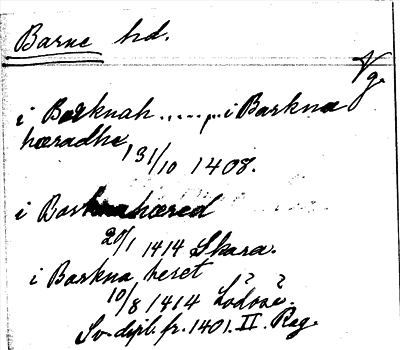 Barne hd.
Vg.
i Barknah......, i Barkna
hæradhe, 31/10 1408.
i Barknahæred
20/1 1414 Skara.
i Barkna heret
10/8 1414 Lödöse.
Sv. dipl. fr. 1401. II. Reg.